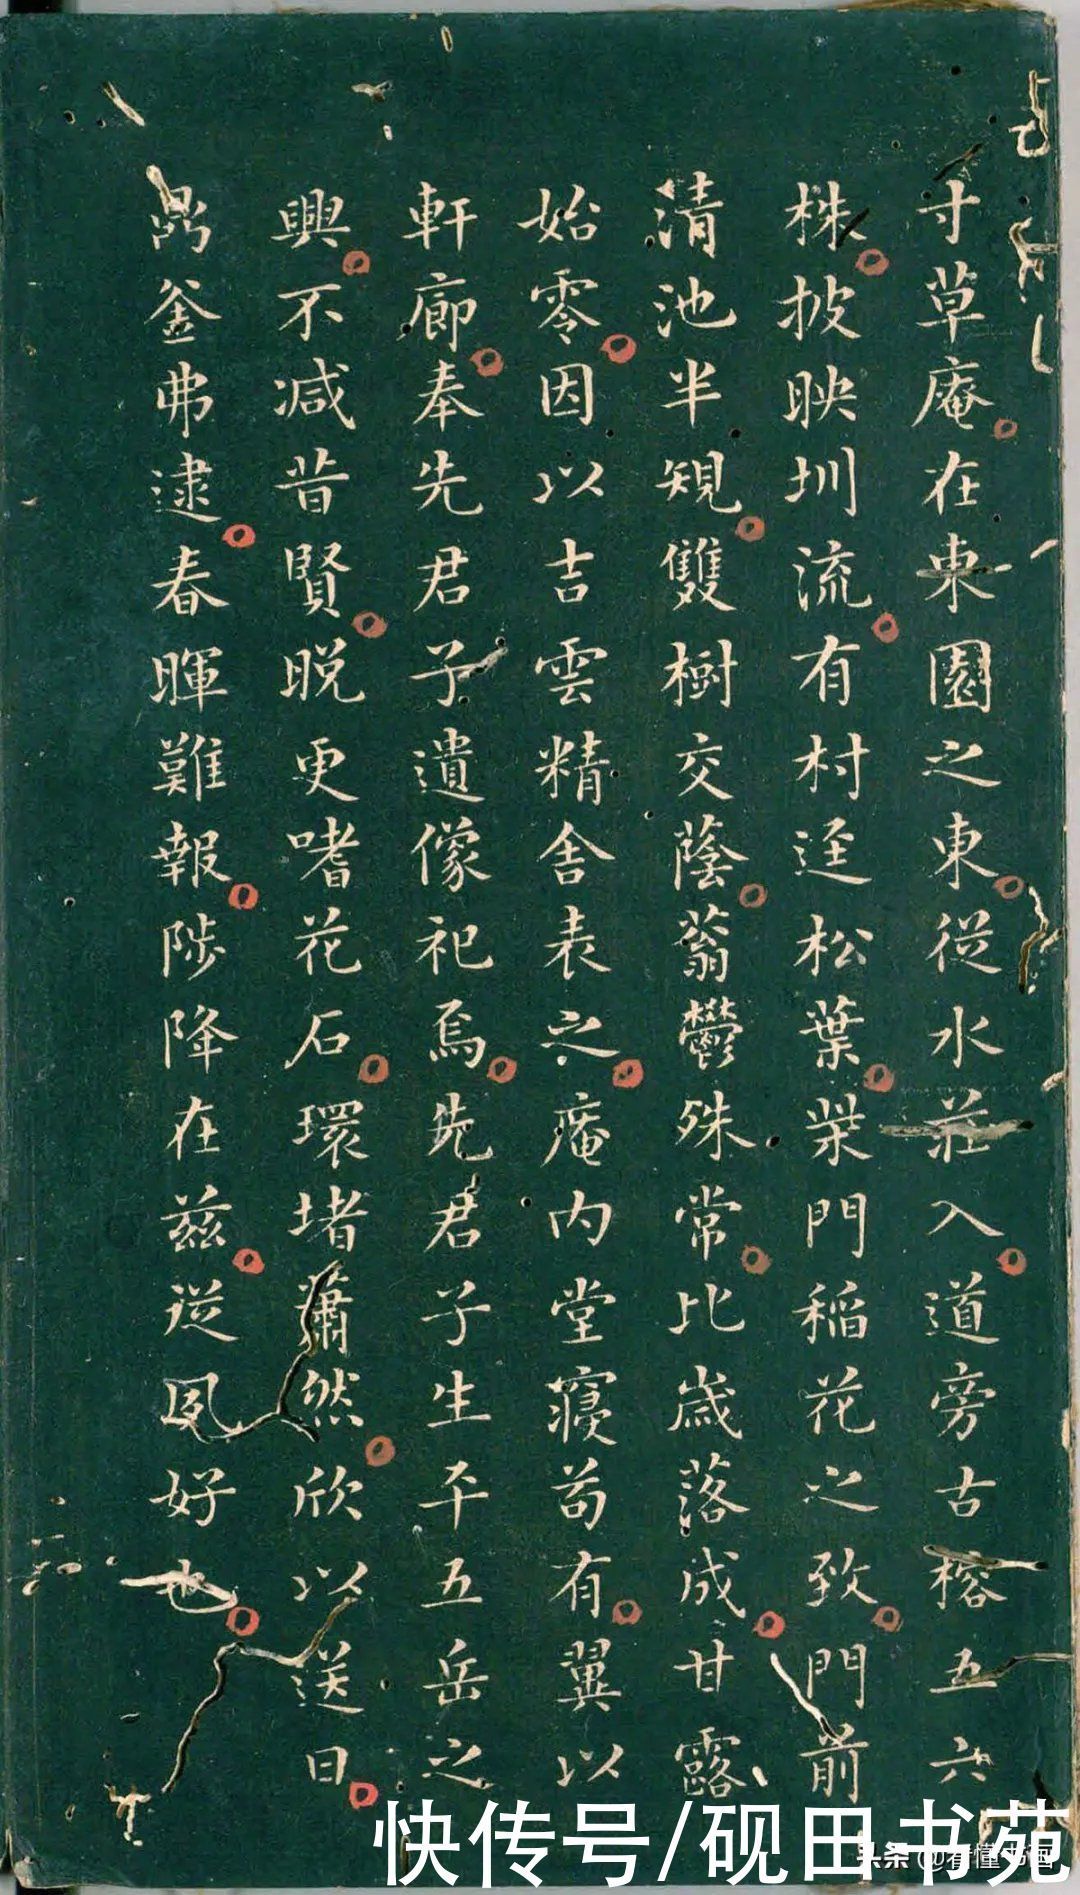 寸草庵在東園之東從水莊入道旁古榕五六
株披映圳流有村迳松葉柴門稻花之致門前
清池半規雙樹交蔭蓊鬱殊常比歲落成甘露
始零因以吉雲精舍表之庵内堂寢苟有翼以
軒廊奉先君子遺像祀焉先君子生平五岳之
興不减昔賢晚更嗜花石環堵蕭然欣以送日
鼎釜弗逮春暉難報陟降在兹從夙好也
快传号/砚田书苑
头条@看懂书画